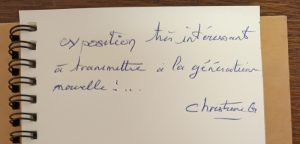 exposition très intéressant
à transmettre à la génération
nouvelle !...
Christiane G